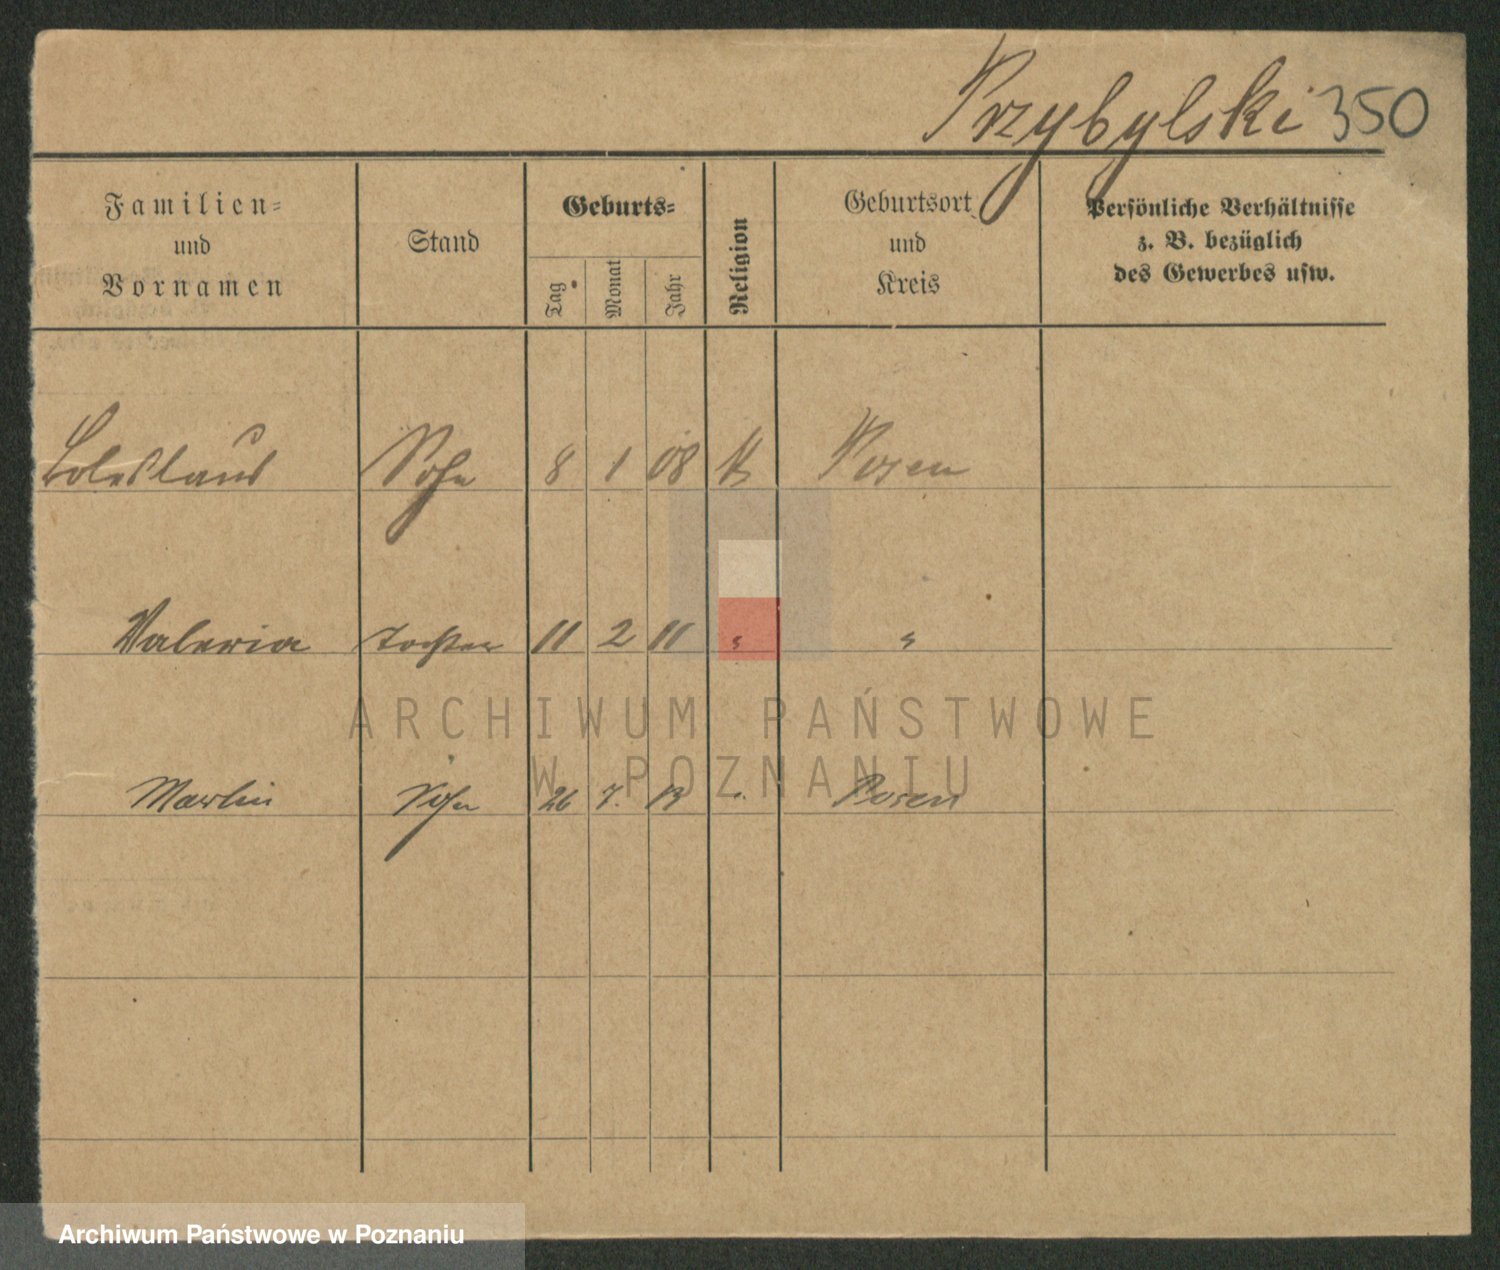 Przybylski 350
Familien-
und
Vornamen
Stand
Geburts-
Tag
Monat
Jahr
Religion
Geburtsort
und
Kreis
Persönliche Verhältnisse
z. B. bezüglich
des Gewerbes usw.
Boleslaus Sohn 8 1 08 K Posen
Valeria Tochter 11 2 11 " "
Sohn 26 7. 13 " Posen
ARCHIWUM PAŃSTWOWE
W POZNANIU
Archiwum Państwowe w Poznaniu